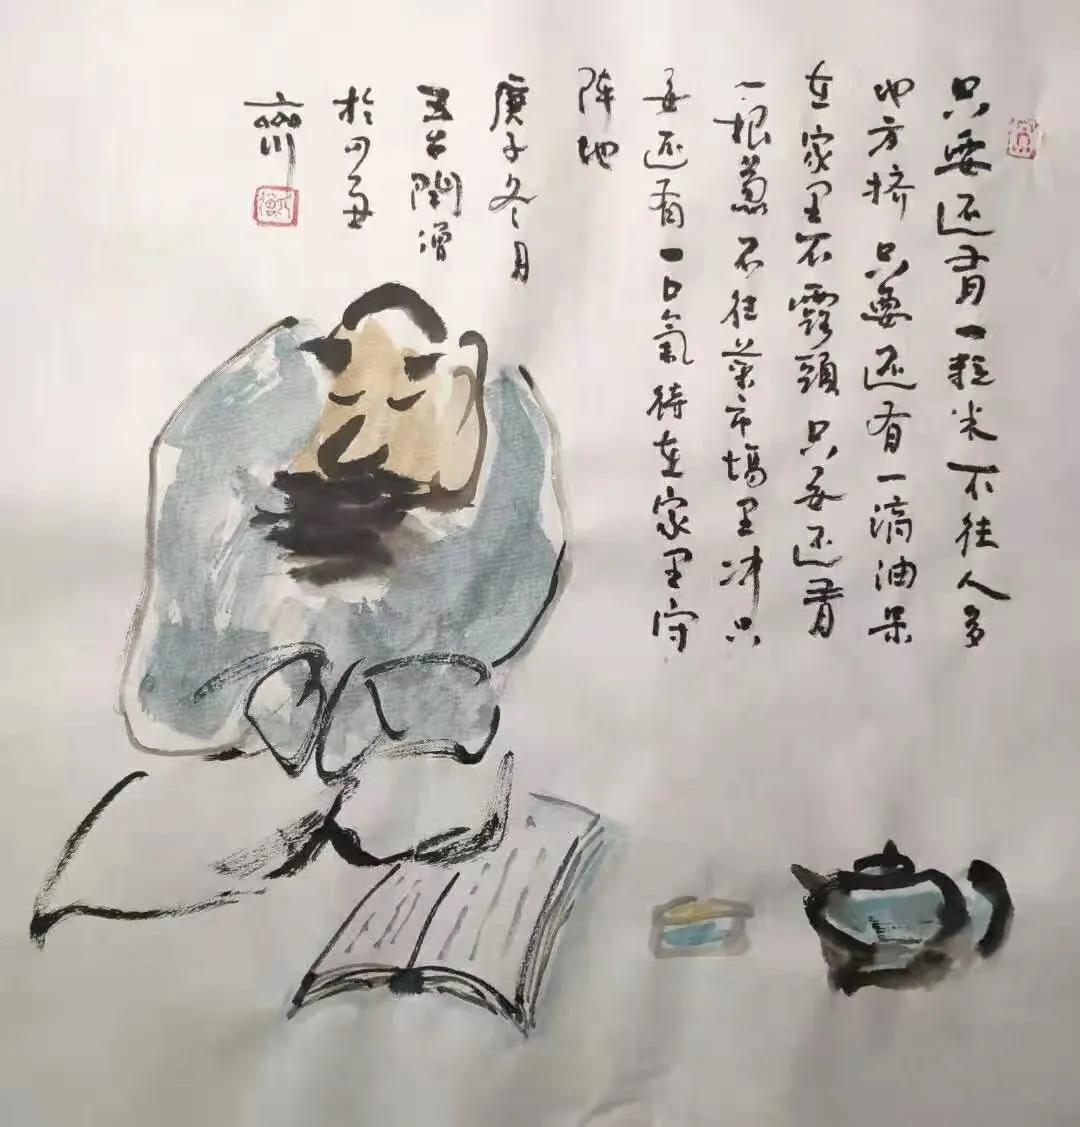 只要还有一粒米不往人多
地方挤只要还有一滴油呆
在家里不露頭只要还有
一根葱不往菜市場里冲只
要还有一口氣待在家里守
阵地
庚子冬月
於